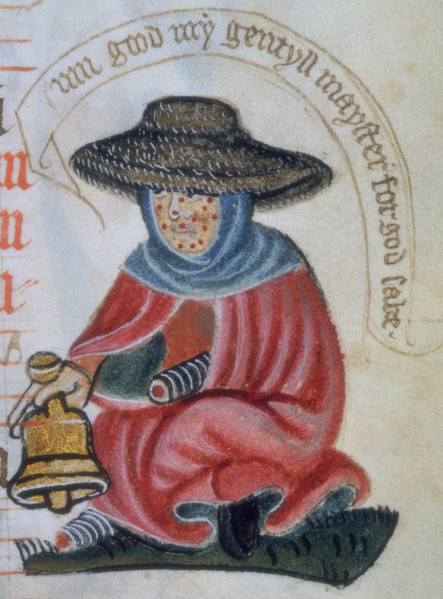 gud my gentyll mayster for god sake.